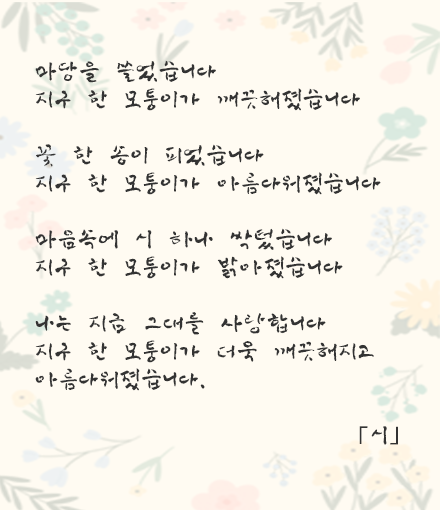 마당을 쓸었습니다
지구 한 모퉁이가 깨끗해졌습니다
꽃 한 송이 피었습니다
지구 한 모퉁이가 아름다워졌습니다
마음속에 시 하나 싹텄습니다
지구 한 모퉁이가 밝아졌습니다
나는 지금 그대를 사랑합니다
지구 한 모퉁이가 더욱 깨끗해지고
아름다워졌습니다.
「시」